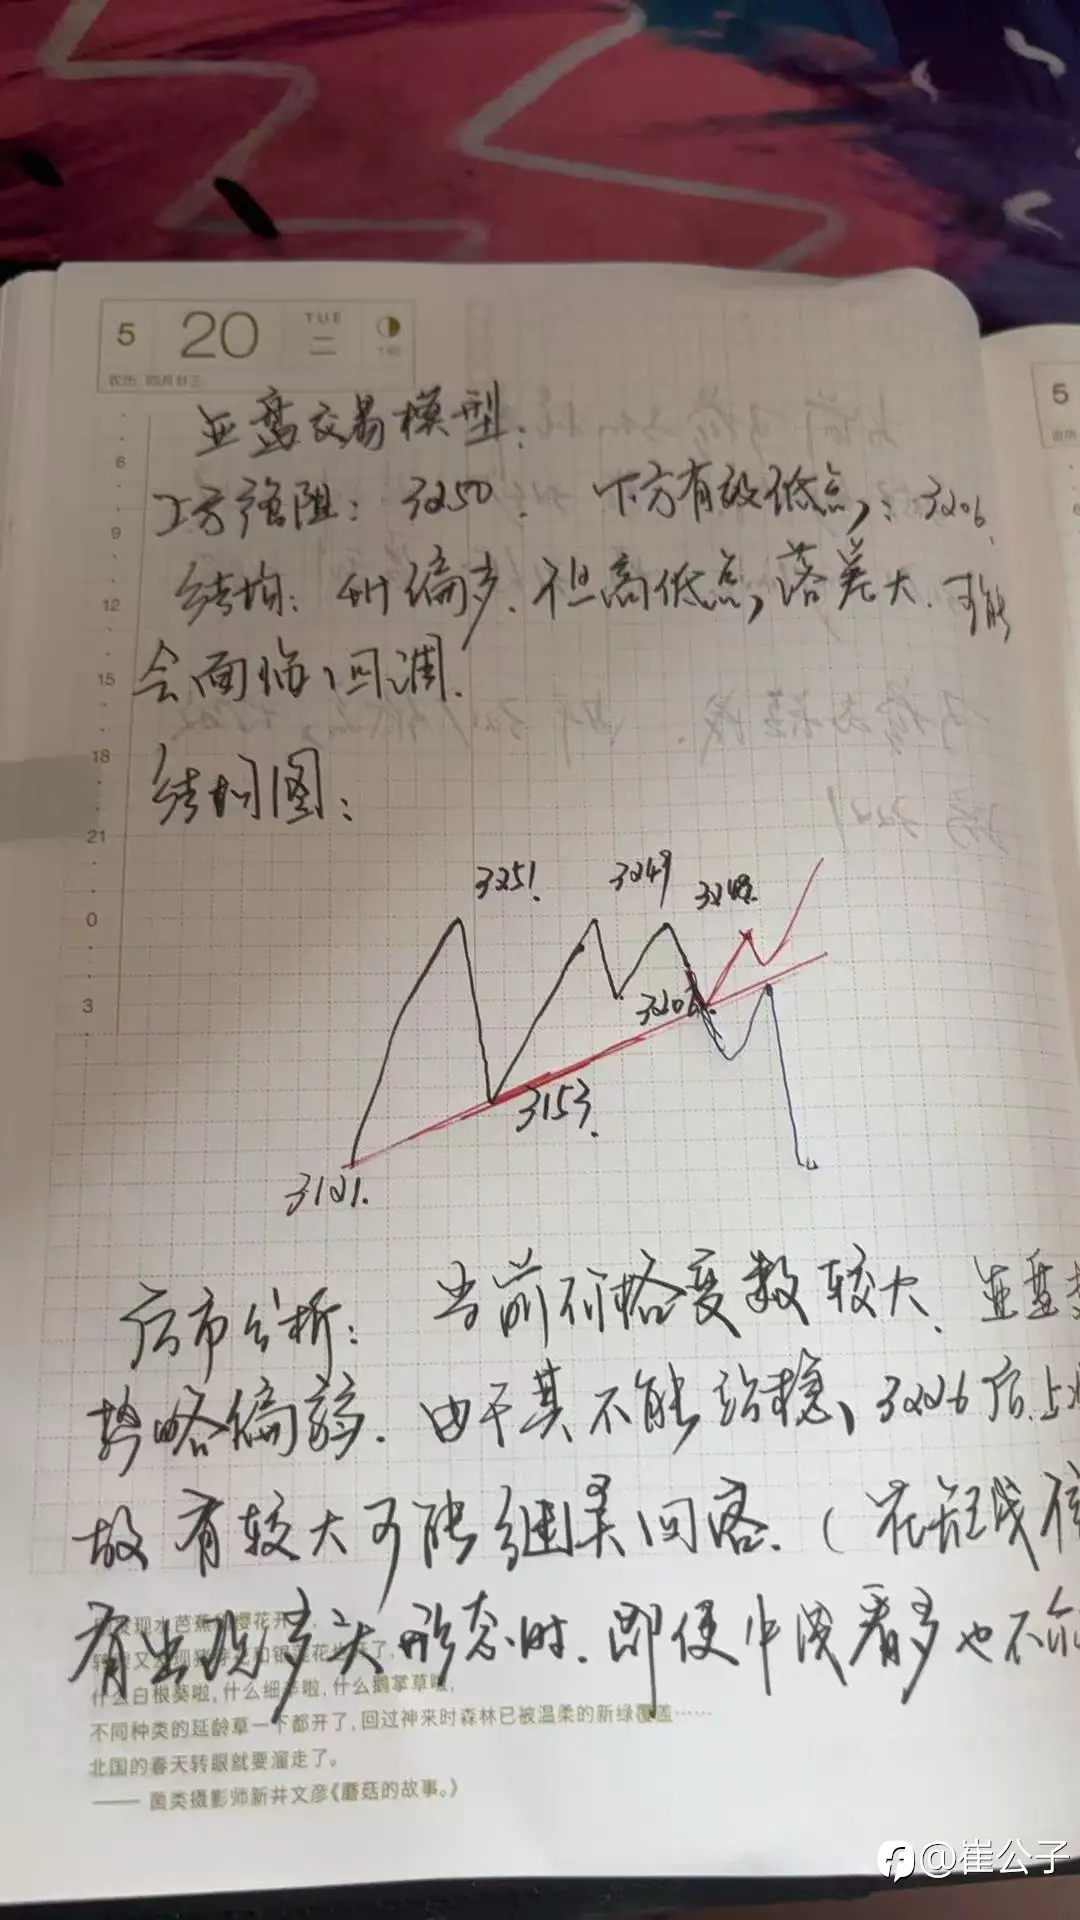 5 20 TUE 二
农历 四月廿三
亚盘交易模型：
上方强阻：3250． 下方有效低点：3206．
结构：4H偏多．但高低点落差大．可能
会面临回调．
结构图：
6
9
12
15
18
21
0
3
3251．
3249
3206．
3153．
3121．
后市分析：当前价格变数较大、亚盘
势略偏弱．由于其不能站稳、3226后
故有较大可能继续回落．（在短线
有出现多头形态时．即便中线看多也不
现水芭蕉 樱花开
什么白根葵啦，什么细辛啦，什么鹅掌草啦，
不同种类的延龄草一下都开了，回过神来时森林已被温柔的新绿覆盖……
北国的春天转眼就要溜走了。
—— 菌类摄影师新井文彦《蘑菇的故事。》
5
@崔公子